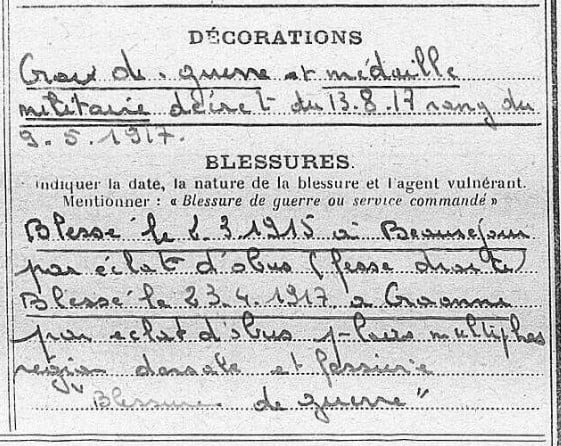 DÉCORATIONS
Croix de guerre et médaille
militaire décret du 13.8.17 rang du
9.5.1917.
BLESSURES.
Indiquer la date, la nature de la blessure et l'agent vulnérant.
Mentionner : « Blessure de guerre ou service commandé »
Blessé le 2.3.1915 à Beauséjour
par éclat d'obus (fesse droite)
Blessé le 23.4.1917 à Craonne
par éclat d'obus plaies multiples
région dorsale et fessière
"Blessure de guerre"